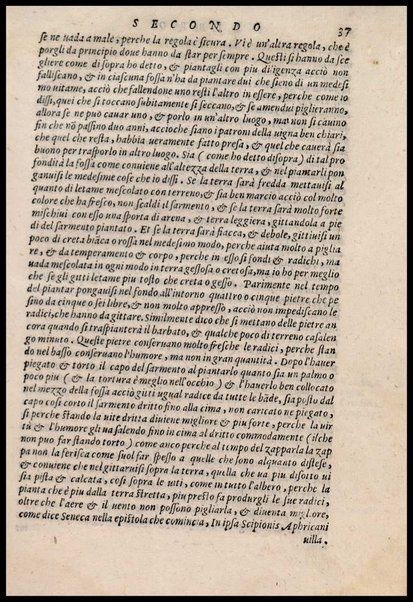 SECONDO
37
se ne uada a male, perche la regola è sicura. Vi è un'altra regola, che è
porgli da principio doue hanno da star per sempre. Questi si hanno da sce
gliere come di sopra ho detto, & piantagli con piu diligenza acciò non
falliscano, & in ciascuna fossa n'ha da piantare dui che sieno di un medesi
mo uitame, acciò che fallendone uno resti l'altro in essere, perche come io
dissi, quei che si toccano subitamente si seccano, & se amendui piglieranno,
allora se ne può cauar uno, & porlo in un'altro luogo, ma non si cauino
fin che nō passino duo anni, accioche siano i patroni della uigna ben chiari,
che quel che resta, habbia ueramente fatto presa, & quel che cauerà sia
buono per trasporlo in altro luogo. Sia (come ho detto disopra) di tal pro
fondità la fossa come conuiene all'altezza della terra, & nel piantarli pon
ganuisi le medesime cose che io dissi. Se la terra sarà fredda mettauisi al
quanto di letame mescolato con terreno, & sia ben marcio acciò col molto
colore che ha fresco, non scaldi il sarmento, & se la terra sarà molto forte
mischiui con esso una sporta di arena, & terra leggiera, gittandola a pie
di del sarmento piantato. Et se la terra sarà fiacca, & debole, gittiuisi un
poco di creta biāca o rossa nel medesimo modo, perche aiuta molto a piglia
re, & da temperamento & corpo, perche in esso si fondi & radichi, ma
uada mescolata in ogni modo in terra gessosa o cretosa, ma io ho per meglio
che se gli gitti letame piu tosto che creta o gesso. Parimente nel tempo
del piantar pongauisi nel fondo all'intorno quattro o cinque pietre che pe
sino da cinque o sei libre, & non molto appresso, acciò non impediscano le
radici, che hanno da gittare. Similmente dico che si mettano delle pietre an
cora quando si traspianterà il barbato, & qualche poco di terreno casalen
go minuto. Queste pietre conseruano molto fresche le radici, perche stan
do nel basso conseruano l'humore, ma non in gran quantità. Dopo l'hauer
piegato & torto il capo del sarmento al piantarlo quanto sia un palmo o
poco piu (& la tortura è meglio nell'occhio) & l'hauerlo ben collocato
nel mezzo della fossa acciò giti ugual radice da tutte le bāde, sia posto dal
capo così corto il sarmento dritto fino alla cima, non caricato ne piegato,
si perche stando la uite dritta diuiene migliore & piu forte, perche la uir
tù & l'humore gli ua salendo fino in cima al dritto commodamente (ilche
non puo far stando torto) come anco perche al tempo del zapparla la zap
pa non la ferisca come suol far spesso a quelle che sono alquanto distese,
& conuiene che nel gittaruisi sopra la terra, quella che ua piu disotto ui
sia pista & calcata, così sopra le uiti, come in tutto l'albero, perche la
pianta che è piu dalla terra stretta, piu presto fa produrgli le sue radici,
oltre che l'aere & il uento non possono pigliarla, & diuenta migliore,
come dice Seneca nella epistola che comincia, In ipsa Scipionis Aphricani
uilla.